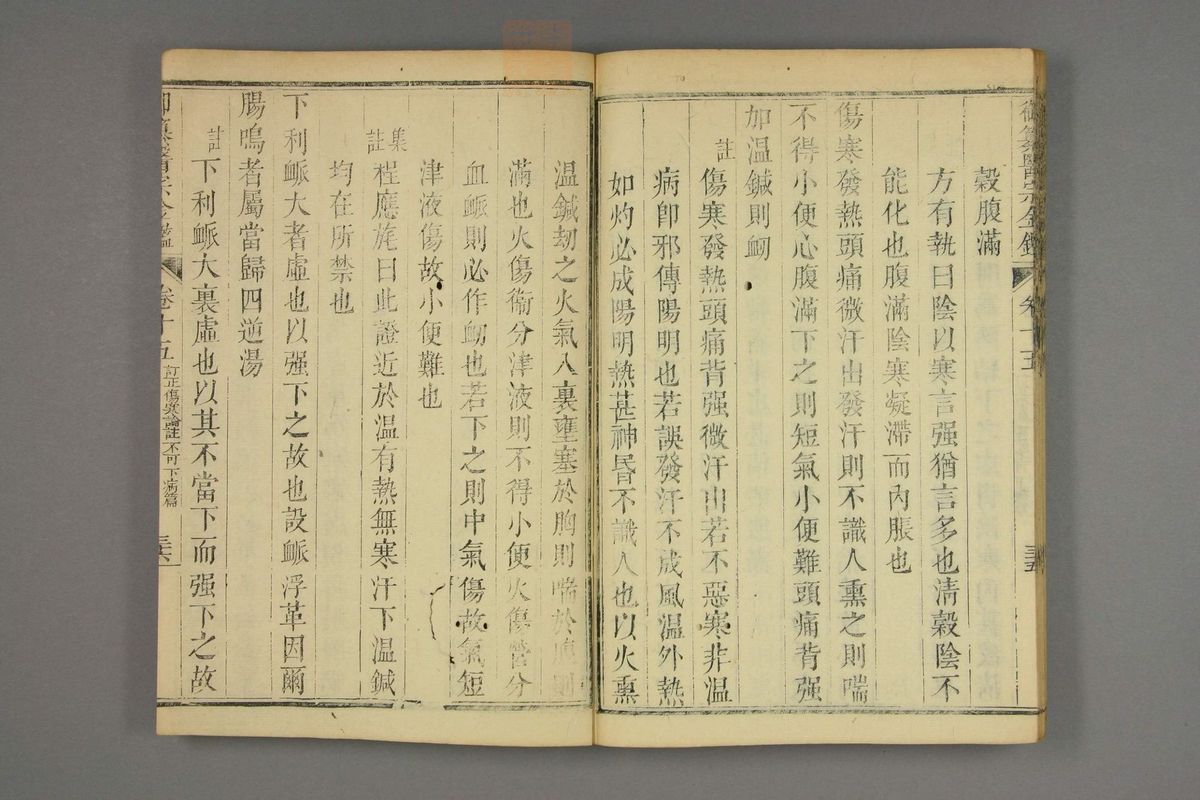 御纂醫宗金鑑 卷十五 三五
穀腹滿
方有執曰陰以寒言强猶言多也淸穀陰不
能化也腹滿陰寒凝滯而內脹也
傷寒發熱頭痛微汗出發汗則不識人熏之則喘
不得小便心腹滿下之則短氣小便難頭痛背强
加温鍼則衂
註 傷寒發熱頭痛背强微汗出若不惡寒非温
病卽邪傳陽明也若誤發汗不成風温外熱
如灼必成陽明熱甚神昬不識人也以火熏
温鍼刼之火氣入裏壅塞於胸則喘於
滿也火傷衞分津液則不得小便火傷營分
血衇則必作衂也若下之則中氣傷故氣短
津液傷故小便難也
集註 程應旄曰此證近於温有熱無寒汗下温鍼
均在所禁也
下利衇大者虛也以强下之故也設衇浮革因爾
腸鳴者屬當歸四逆湯
註 下利衇大裏虛也以其不當下而强下之故
御纂醫宗金鑑 卷十五 訂正傷寒論註 不可下病篇 三六